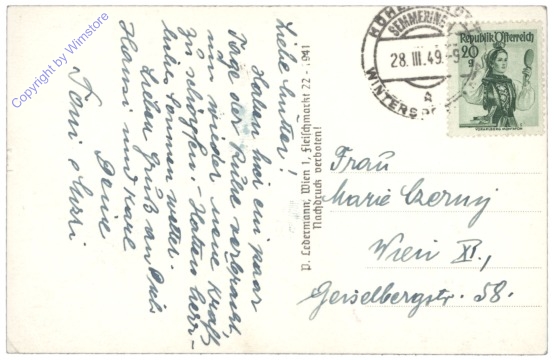 Copyright by Wimstore
Liebe Mutter!
Haben hier ein paar
Tage der Ruhe verbracht,
um wieder neue Kraft
zu schöpfen. - Hatten herr-
liches Sonnenwetter.
Lieben Gruß an
Hansi und Karl
Deine
Toni
P. Ledermann, Wien 1, Fleischmarkt 22 - 1941
Nachdruck verboten!
SEMMERING
28. III. 49. - 9
WINTERSP
Republik Österreich
20 g
Frau
Marie Czerny
Wien XI.,
Geiselbergstr. 58.